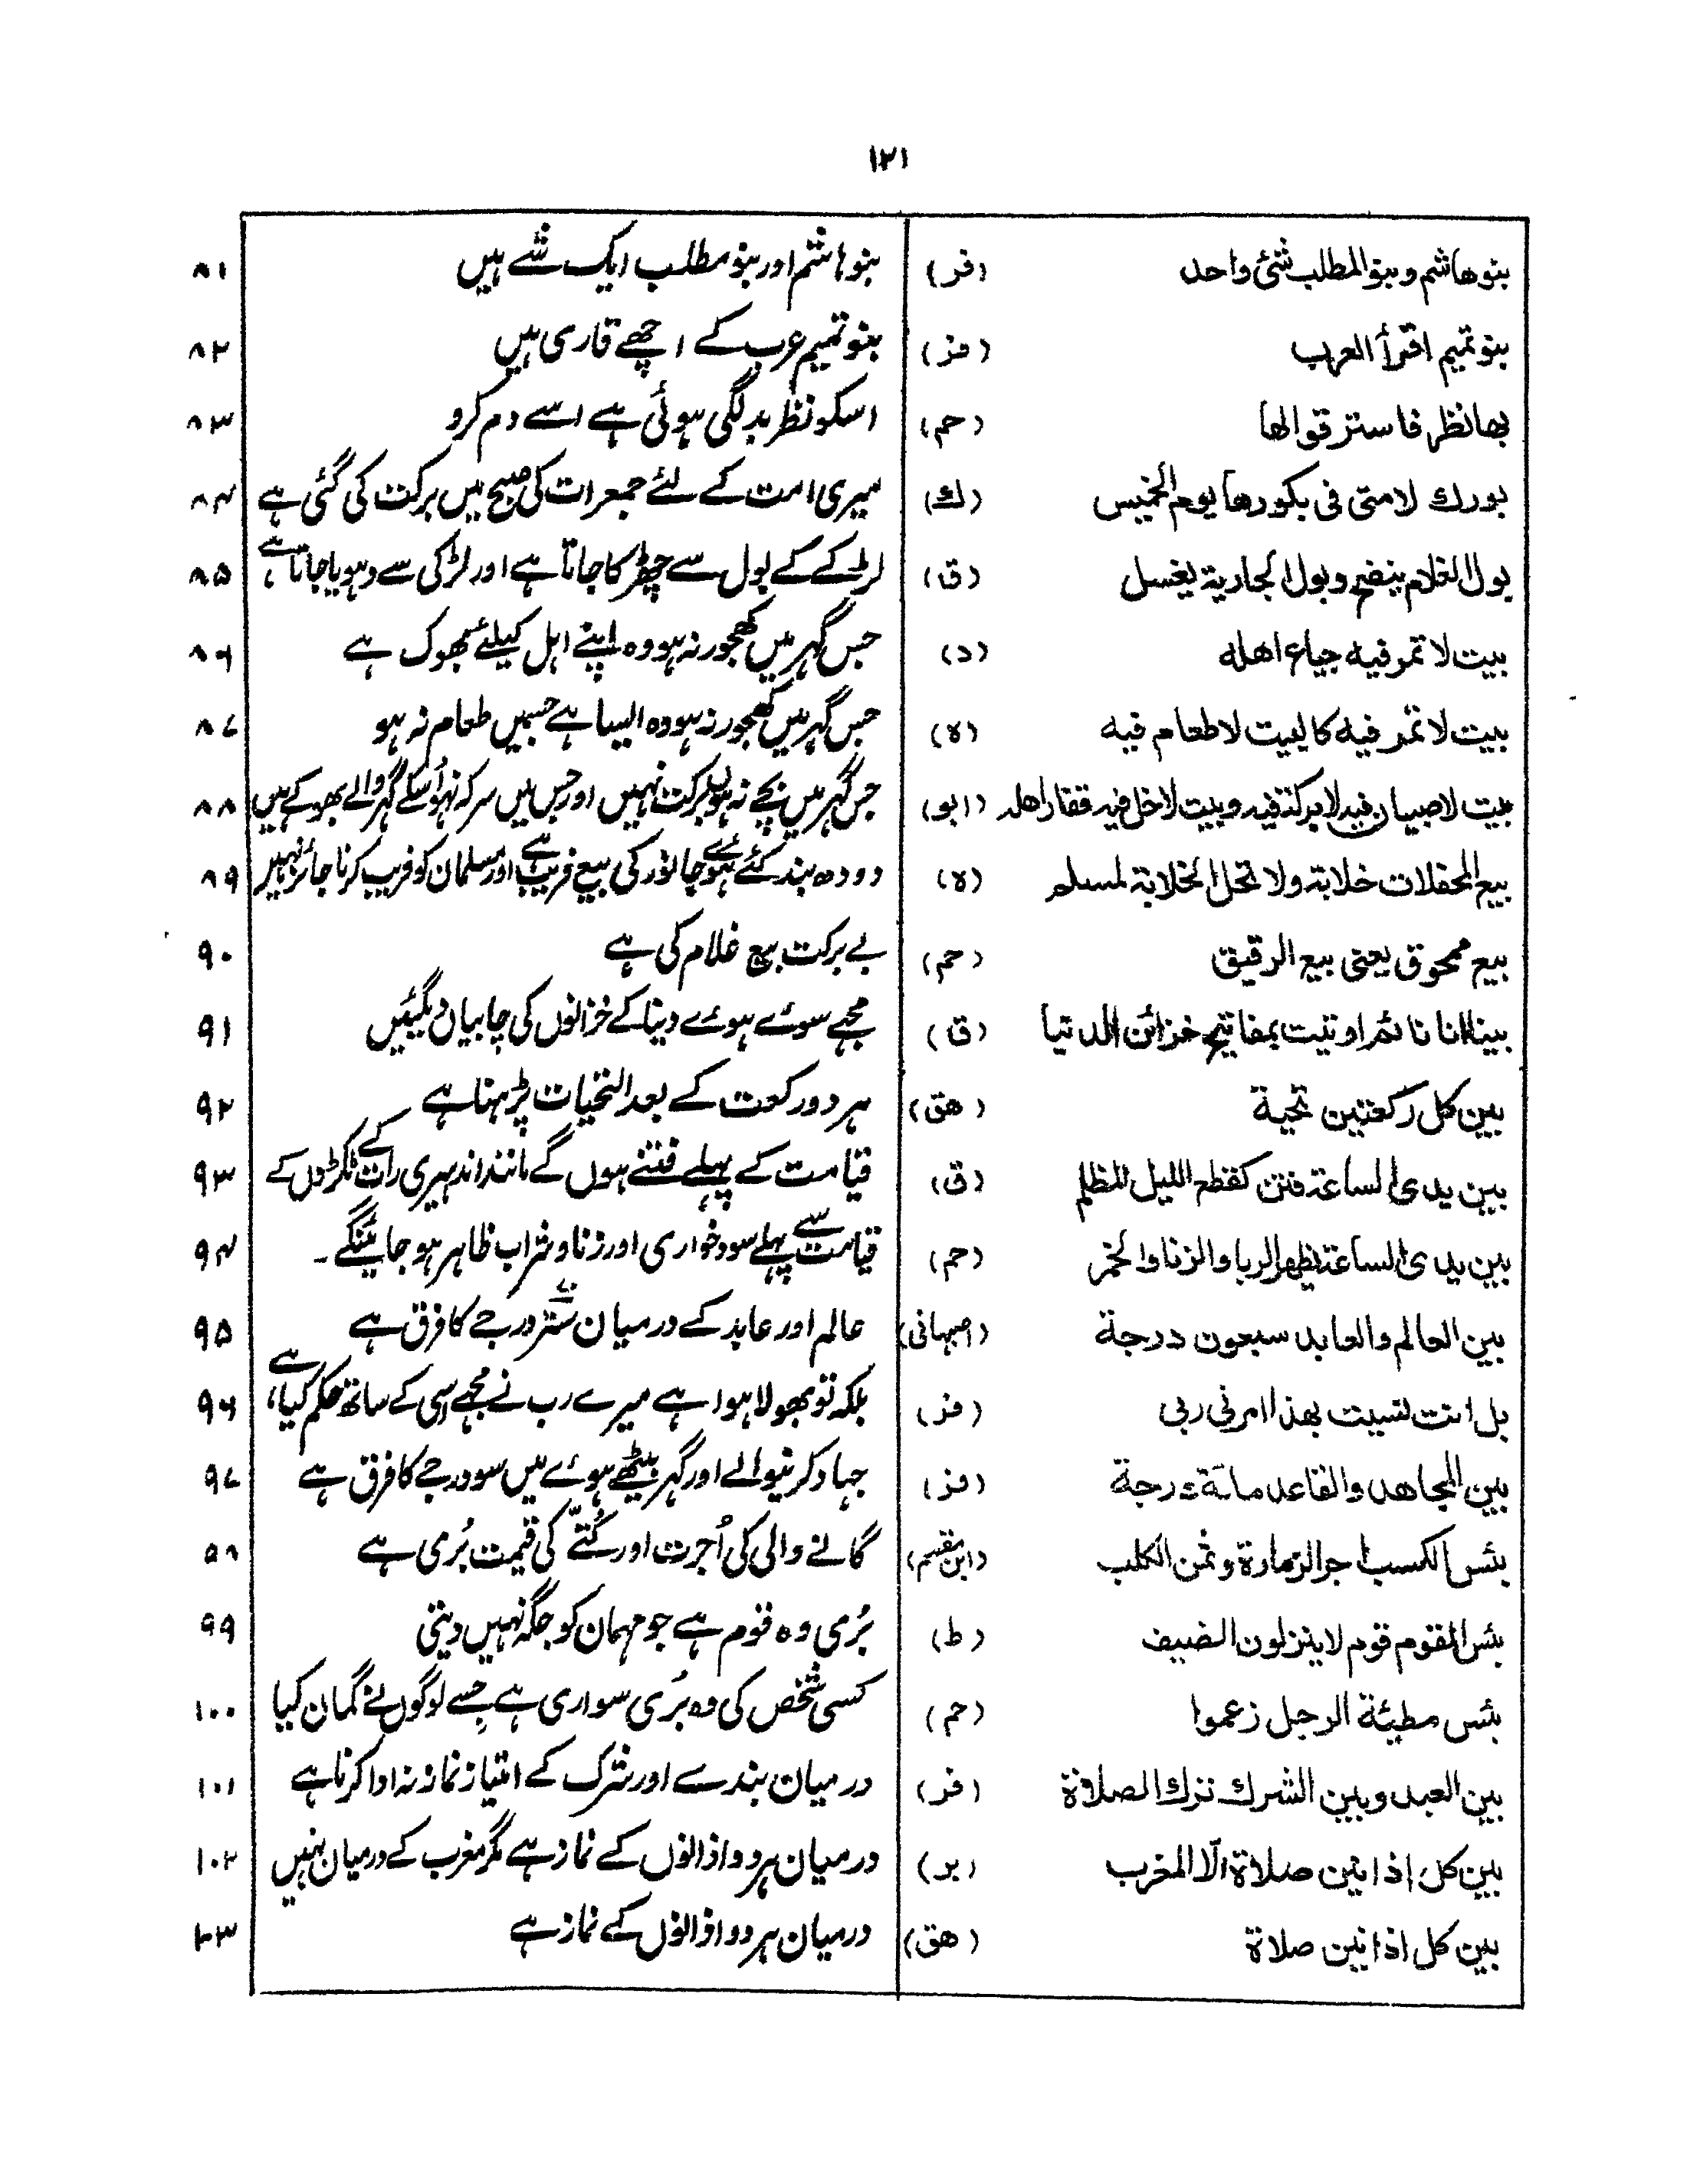 ۱۲۱
بنوهاشم وبنو المطلب شئ واحد (فر) بنو ہاشم اور بنو مطلب ایک شے ہیں ۸۱
بنو تمیم اقرأ العرب (فر) بنو تمیم عرب کے اچھے قاری ہیں ۸۲
بها نظر فاسترقوا لها (حم) اسکو نظر بد لگی ہوئی ہے اسے دم کرو ۸۳
بورك لامتی فی بکورها یوم الخمیس (ك) میری امت کے لئے جمعرات کی صبح میں برکت کی گئی ہے ۸۴
بول الغلام ینضح وبول الجاریة یغسل (ق) لڑکے کے بول سے چھڑکا جاتا ہے اور لڑکی سے دہویا جاتا ہے ۸۵
بیت لا تمر فیه جیاع اهله (د) جس گہر میں کھجور نہ ہو وہ اپنے اہل کیلئے بھوک ہے ۸۶
بیت لا تمر فیه کالبیت لا طعام فیه (ه) جس گہر میں کھجور نہ ہو وہ ایسا ہے جسمیں طعام نہ ہو ۸۷
بیت لا صبیان فیه لا برکة فیه وبیت لا خل فیه قفار اهله (ابو) جس گہر میں بچے نہ ہوں برکت نہیں اور جس میں سرکہ نہو اُسکے گہر والے بھوکے ہیں ۸۸
بیع المحفلات خلابة ولا تحل الخلابة لمسلم (ه) دودھ بند کئے ہوئے جانور کی بیع فریب ہے اور مسلمان کو فریب کرنا جائز نہیں ۸۹
بیع ممحوق یعنی بیع الرقیق (حم) بے برکت بیع غلام کی ہے ۹۰
بینا انا نائم اوتیت بمفاتیح خزائن الدنیا (ق) مجہے سوئے ہوئے دینا کے خزانوں کی چابیاں دیگئیں ۹۱
بین کل رکعتین تحیة (هق) ہر دو رکعت کے بعد التحیات پڑہنا ہے ۹۲
بین یدی الساعة فتن کقطع اللیل المظلم (ق) قیامت کے پہلے فتنے ہوں گے مانند اندہیری رات کے ٹکڑوں کے ۹۳
بین یدی الساعة یظهر الربا والزنا والخمر (حم) قیامت سے پہلے سود خواری اور زنا و شراب ظاہر ہو جائینگے ۔ ۹۴
بین العالم والعابد سبعون درجة (اصبہانی) عالم اور عابد کے درمیان ستر درجے کا فرق ہے ۹۵
بل انت نسیت بهذا امرنی ربی (فر) بلکہ تو بھولا ہوا ہے میرے رب نے مجہے اسی کے ساتھ حکم کیا ہے، ۹۶
بین المجاهد والقاعد مائة درجة (فر) جہاد کرنیوالے اور گہر بیٹھے ہوئے میں سو درجے کا فرق ہے ۹۷
بئس الکسب اجر الزمارة وثمن الکلب (ابن مقسم) گانے والی کی اُجرت اور کُتّے کی قیمت بُری ہے ۵۸
بئس القوم قوم لا ینزلون الضیف (ط) بُری وہ قوم ہے جو مہمان کو جگہ نہیں دیتی ۹۹
بئس مطیئة الرجل زعموا (حم) کسی شخص کی وہ بُری سواری ہے جسے لوگوں نے گمان کیا ۱۰۰
بین العبد وبین الشرك ترك الصلاة (فر) درمیان بندے اور شرک کے امتیاز نماز نہ ادا کرنا ہے ۱۰۱
بین کل اذانین صلاة الّا المغرب (بر) درمیان ہر دو اذانوں کے نماز ہے مگر مغرب کے درمیان نہیں ۱۰۲
بین کل اذانین صلاة (هق) درمیان ہر دو اذانوں کے نماز ہے ۱۰۳